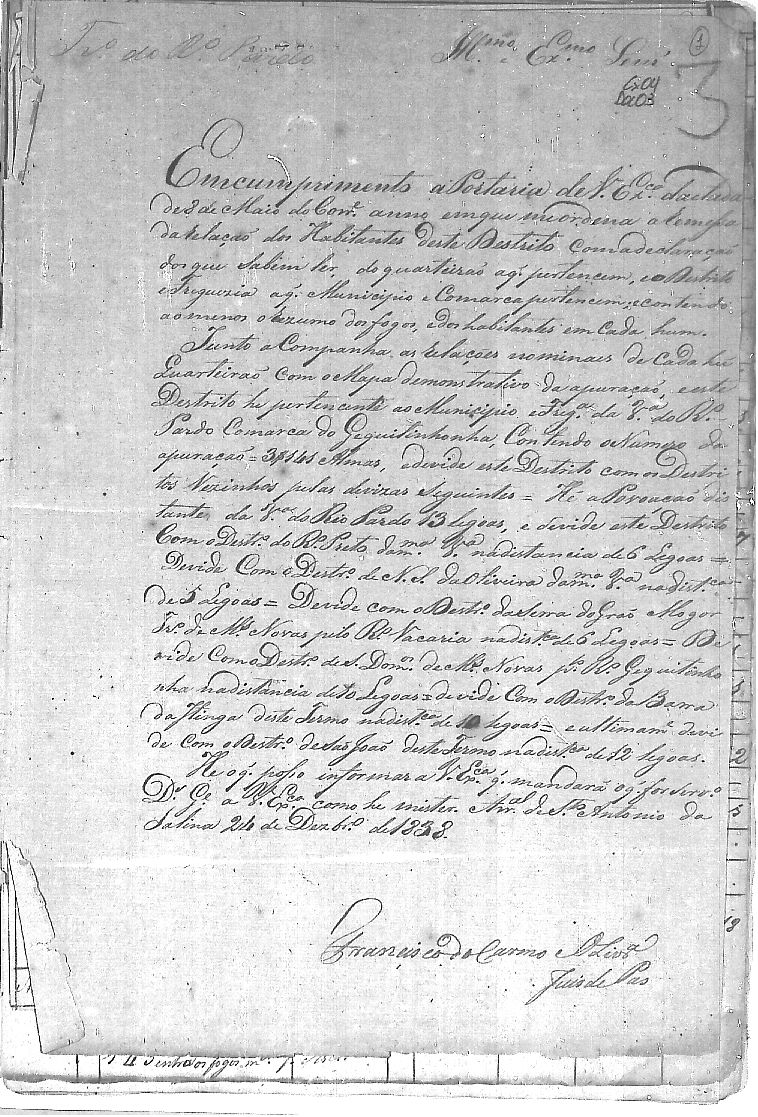 Tr.º do R.º Pardo
Ill.mo e Ex.mo Senr.
1
3
Cx04
Doc03
Em cumprimento á Portaria de V. Ex.ca dactada
de 8 de Maio do Corr.e anno, em que me ordena a remessa
da relacaõ dos Habitantes deste Destrito com a declaraçaõ
dos que Sabem ler, do quarteiraõ aq. pertencem, e o Destrito
e Freguezia aq. Municipio e Comarca pertencem, e contendo
ao menos o rezumo dos fogos, e dos habitantes em Cada hum.
Junto a Companha, as relações nominaes de Cada hũ
Quarteiraõ com o Mapa demonstrativo da apuraçaõ, e este
Destrito he pertencente ao Municipio e Freg.a da V.a do R.º
Pardo Comarca do Gequitinhonha, Contendo o Numero da
apuraçaõ = Almas, a devide este Destrito com os Destri
tos Vezinhos pelas devizas Seguintes = Hé a Povoaçaõ dis
tante, da V.a do Rio Pardo 13 legoas, e devide este Destrito
Com o Destr.º do R.º Preto da m.ma V.a na distancia de 6 Legoas =
Devide Com o Destr.º de N. S. da Oliveira da m.ma V.a na dist.ca
de 5 Legoas = Devide com o Destr.º da Serra do Graõ Mogor
Tr.º de M.s Novas pelo R.º Vacaria na dist.ca de 6 Legoas = De
vide Com o Destr.º de S. Dom.os de M.s Novas p.lo R.º Gequitinho
nha na distancia de 10 Legoas = devide Com o Destr.º da Barra
da Itinga deste Termo na dist.ca de legoas = e ultimam.e devi
de com o Destr.º de Saõ Joaõ deste Termo na dist.ca de 12 legoas.
He oq. posso informar a V. Ex.ca q. mandará oq. for serv.º
D.s G.e a V. Ex.ca como he mister. Arr.al de S.to Antonio da
Salina 24 de Dezbr.º de 1838.
Francisco do Carmo Olivr.a
Juis de Pas